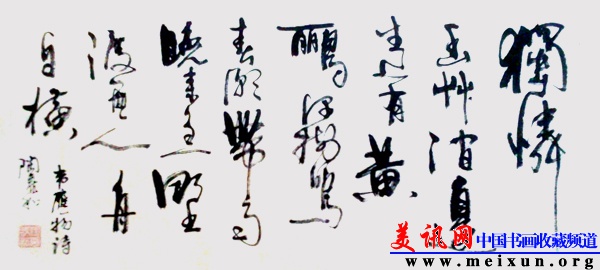 獨憐
幽艸澗邊
生上有黄
鸝深樹鳴
春潮帶雨
晚来急野
渡無人舟
自横
韋應物詩
陶
美讯网 中国书画收藏频道
www.meixun.org